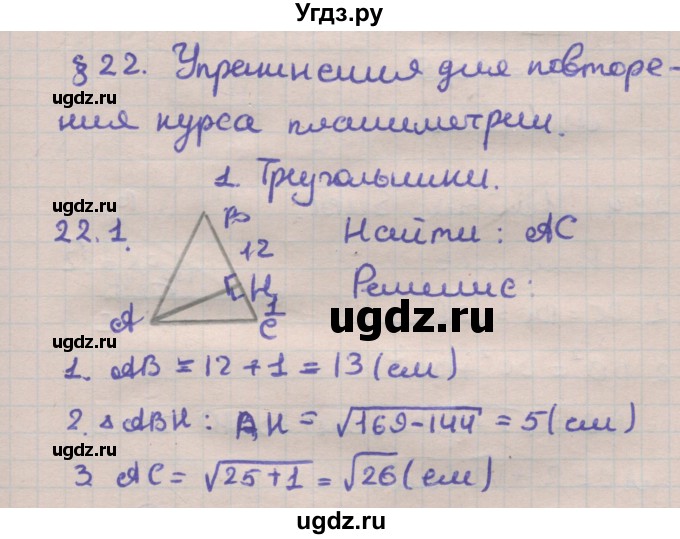 Угдз.ру
§ 22. Упражнения для повторе-
ugdz.ru
ния курса планиметрии.
1. Треугольники.
ugdz.ru
22.1. B Найти: AC
12
H Решение:
A 1 C
ugdz.ru
ugdz.ru
1. AB = 12 + 1 = 13 (см)
2. △ ABH : AH = √169-144 = 5 (см)
ugdz.ru
3. AC = √25+1 = √26 (см)
ugdz.ru
ugdz.ru